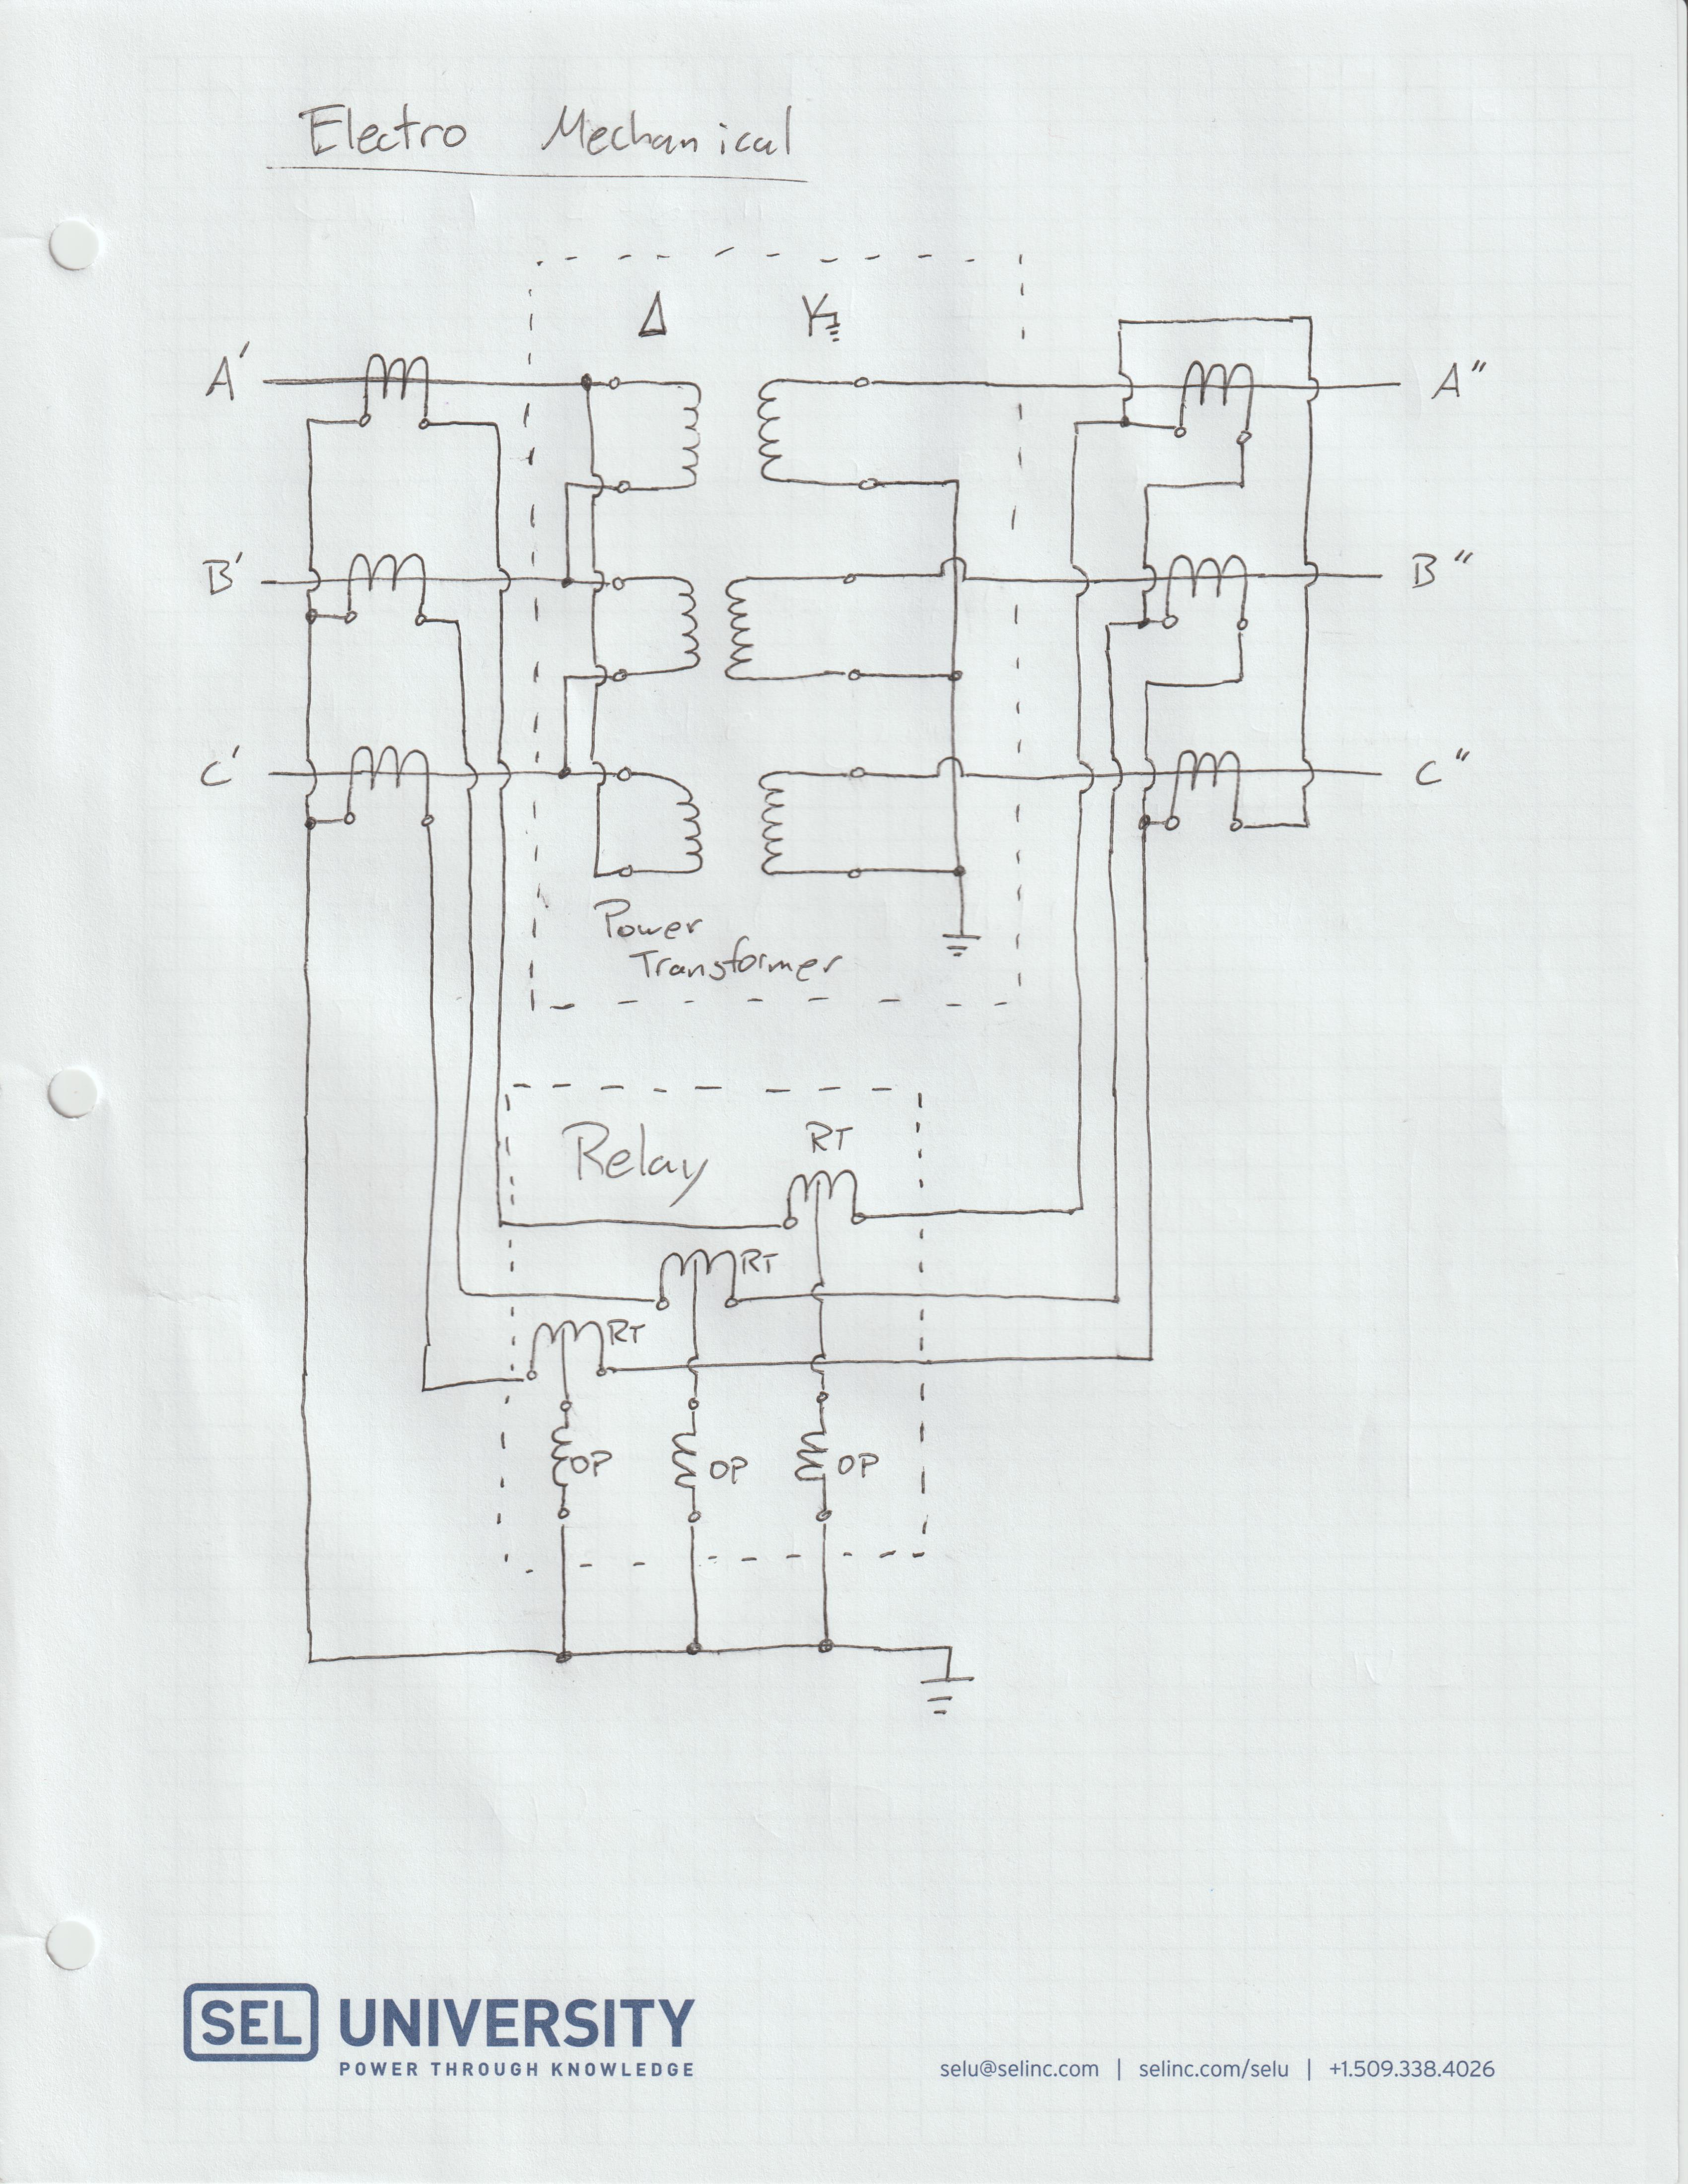 Electro Mechanical
Δ Y
A' A"
B' B"
C' C"
Power
Transformer
Relay RT
RT
RT
OP OP OP
SEL UNIVERSITY
POWER THROUGH KNOWLEDGE
selu@selinc.com | selinc.com/selu | +1.509.338.4026